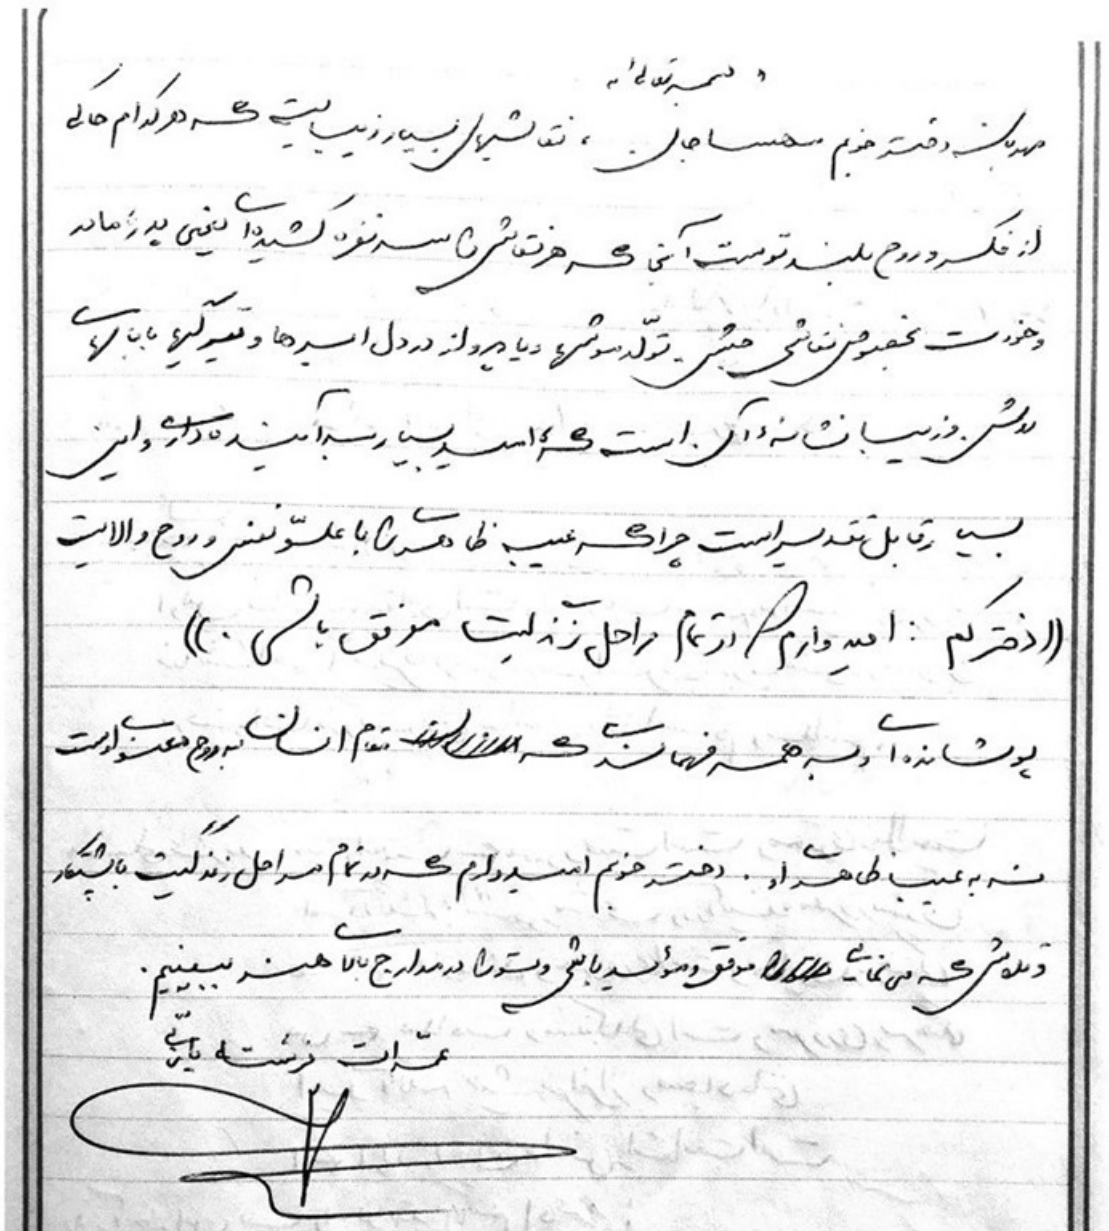 بسمه تعالی
مهربانم دختر خوبم مهسا جان، نقاشیهای بسیار زیباییست که هر کدام حاکی
از فکر و روح بلند توست آنی که هر نقاشی را سه نفره کشیده‌ای یعنی پدر، مادر
و خودت بخصوص نقاشی جشن تولد موشها و یا پرواز در دل ابرها و
روشن و زیبا نشانهٔ آن است که امید بسیار به آینده داری و این
بسیار قابل تقدیر است چرا که عیب ظاهریت را با علوّ نفس و روح والایت
((دخترکم : امیدوارم در تمام مراحل زندگیت موفق باشی.))
پوشانده‌ای و به همه فهماندی که مقام انسان به روح اوست
نه به عیب ظاهری او. دختر خوبم امیدوارم که در تمام مراحل زندگیت با پشتکار
و تلاشی که می‌نمایی موفق و مؤید باشی و تو را در مدارج بالای هنر ببینیم.
عمّه‌ات فرشته